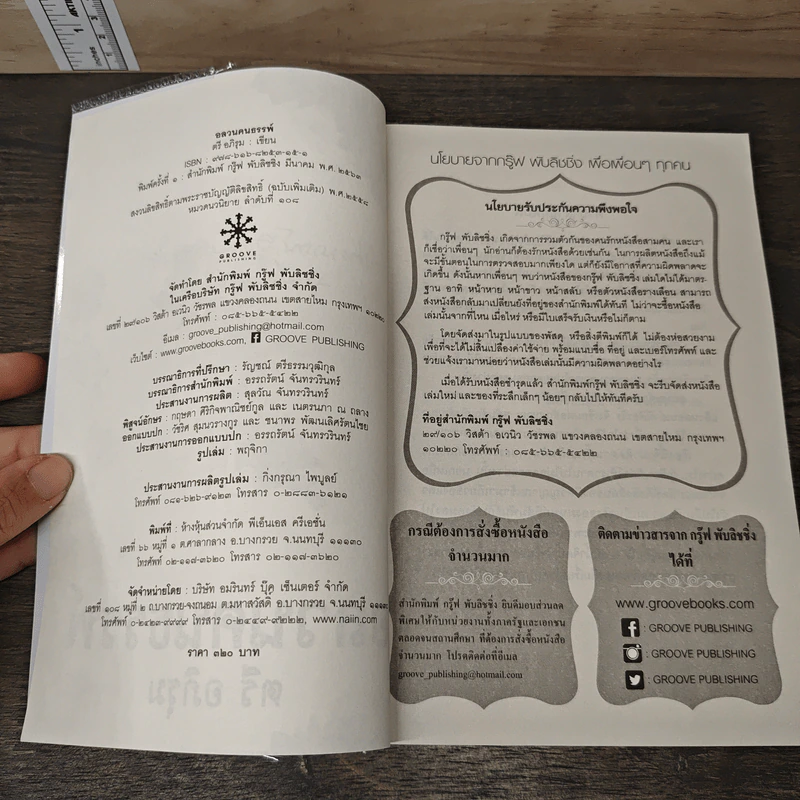 อลวนคนธรรพ์
ตรี อภิรุม : เขียน
ISBN : ๙๗๘-๖๑๖-๘๒๕๓-๑๕-๑
พิมพ์ครั้งที่ ๑ : สำนักพิมพ์ กรู๊ฟ พับลิชชิ่ง มีนาคม พ.ศ. ๒๕๖๓
สงวนลิขสิทธิ์ตามพระราชบัญญัติลิขสิทธิ์ (ฉบับเพิ่มเติม) พ.ศ. ๒๕๕๘
หมวดนวนิยาย ลำดับที่ ๑๐๘
GROOVE
PUBLISHING
จัดทำโดย สำนักพิมพ์ กรู๊ฟ พับลิชชิ่ง
ในเครือบริษัท กรู๊ฟ พับลิชชิ่ง จำกัด
เลขที่ ๒๙/๑๐๖ วิสต้า อเวนิว วัชรพล แขวงคลองถนน เขตสายไหม กรุงเทพฯ ๑๐๒๒๐
โทรศัพท์ : ๐๘๕-๖๖๕-๕๔๒๒
อีเมล : groove_publishing@hotmail.com
เว็บไซต์ : www.groovebooks.com, GROOVE PUBLISHING
บรรณาธิการที่ปรึกษา : รัญชณ์ ตรีธรรมวุฒิกุล
บรรณาธิการสำนักพิมพ์ : อรรถรัตน์ จันทรวรินทร์
ประสานงานการผลิต : สุลวัณ จันทรวรินทร์
พิสูจน์อักษร : กฤษดา ศิริกิจพาณิชย์กูล และ เนตรนภา ณ ถลาง
ออกแบบปก : วัชริศ สุมนวรางกูร และ ธนาพร พัฒนเลิศรัตนไชย
ประสานงานการออกแบบปก : อรรถรัตน์ จันทรวรินทร์
รูปเล่ม : พฤจิกา
ประสานงานการผลิตรูปเล่ม : กิ่งกรุณา ไพบูลย์
โทรศัพท์ ๐๘๑-๖๒๖-๙๑๒๓ โทรสาร ๐-๒๘๘๓-๖๑๒๑
พิมพ์ที่ : ห้างหุ้นส่วนจำกัด พีเอ็นเอส ครีเอชั่น
เลขที่ ๖๖ หมู่ที่ ๑ ต.ศาลากลาง อ.บางกรวย จ.นนทบุรี ๑๑๑๓๐
โทรศัพท์ ๐๒-๑๑๗-๓๖๒๐ โทรสาร ๐๒-๑๑๗-๓๖๒๐
จัดจำหน่ายโดย : บริษัท อมรินทร์ บุ๊ค เซ็นเตอร์ จำกัด
เลขที่ ๑๐๘ หมู่ที่ ๒ ถ.บางกรวย-จงถนอม ต.มหาสวัสดิ์ อ.บางกรวย จ.นนทบุรี ๑๑๑๓๐
โทรศัพท์ ๐-๒๔๒๓-๙๙๙๙ โทรสาร ๐-๒๔๔๙-๙๒๒๒, www.naiin.com
ราคา ๓๒๐ บาท
นโยบายจากกรู๊ฟ พับลิชชิ่ง เพื่อเพื่อนๆ ทุกคน
นโยบายรับประกันความพึงพอใจ
กรู๊ฟ พับลิชชิ่ง เกิดจากการรวมตัวกันของคนรักหนังสือสามคน และเรา
ก็เชื่อว่าเพื่อนๆ นักอ่านก็ต้องรักหนังสือด้วยเช่นกัน ในการผลิตหนังสือถึงแม้
จะมีขั้นตอนในการตรวจสอบมากเพียงใด แต่ก็ยังมีโอกาสที่ความผิดพลาดจะ
เกิดขึ้น ดังนั้นหากเพื่อนๆ พบว่าหนังสือของกรู๊ฟ พับลิชชิ่ง เล่มใดไม่ได้มาตร-
ฐาน อาทิ หน้าหาย หน้าขาว หน้าสลับ หรือตัวหนังสือรางเลือน สามารถ
ส่งหนังสือกลับมาเปลี่ยนยังที่อยู่ของสำนักพิมพ์ได้ทันที ไม่ว่าจะซื้อหนังสือ
เล่มนั้นจากที่ไหน เมื่อไหร่ หรือมีใบเสร็จรับเงินหรือไม่ก็ตาม
โดยจัดส่งมาในรูปแบบของพัสดุ หรือสิ่งตีพิมพ์ก็ได้ ไม่ต้องห่อสวยงาม
เพื่อที่จะได้ไม่สิ้นเปลืองค่าใช้จ่าย พร้อมแนบชื่อ ที่อยู่ และเบอร์โทรศัพท์ และ
ช่วยแจ้งเรามาหน่อยว่าหนังสือเล่มนั้นมีความผิดพลาดอย่างไร
เมื่อได้รับหนังสือชำรุดแล้ว สำนักพิมพ์กรู๊ฟ พับลิชชิ่ง จะรีบจัดส่งหนังสือ
เล่มใหม่ และของที่ระลึกเล็กๆ น้อยๆ กลับไปให้ทันทีครับ
ที่อยู่สำนักพิมพ์ กรู๊ฟ พับลิชชิ่ง
๒๙/๑๐๖ วิสต้า อเวนิว วัชรพล แขวงคลองถนน เขตสายไหม กรุงเทพฯ
๑๐๒๒๐ โทรศัพท์ : ๐๘๕-๖๖๕-๕๔๒๒
กรณีต้องการสั่งซื้อหนังสือ
จำนวนมาก
สำนักพิมพ์ กรู๊ฟ พับลิชชิ่ง ยินดีมอบส่วนลด
พิเศษให้กับหน่วยงานทั้งภาครัฐและเอกชน
ตลอดจนสถานศึกษา ที่ต้องการสั่งซื้อหนังสือ
จำนวนมาก โปรดติดต่อที่อีเมล
groove_publishing@hotmail.com
ติดตามข่าวสารจาก กรู๊ฟ พับลิชชิ่ง
ได้ที่
www.groovebooks.com
: GROOVE PUBLISHING
: GROOVE PUBLISHING
: GROOVE PUBLISHING